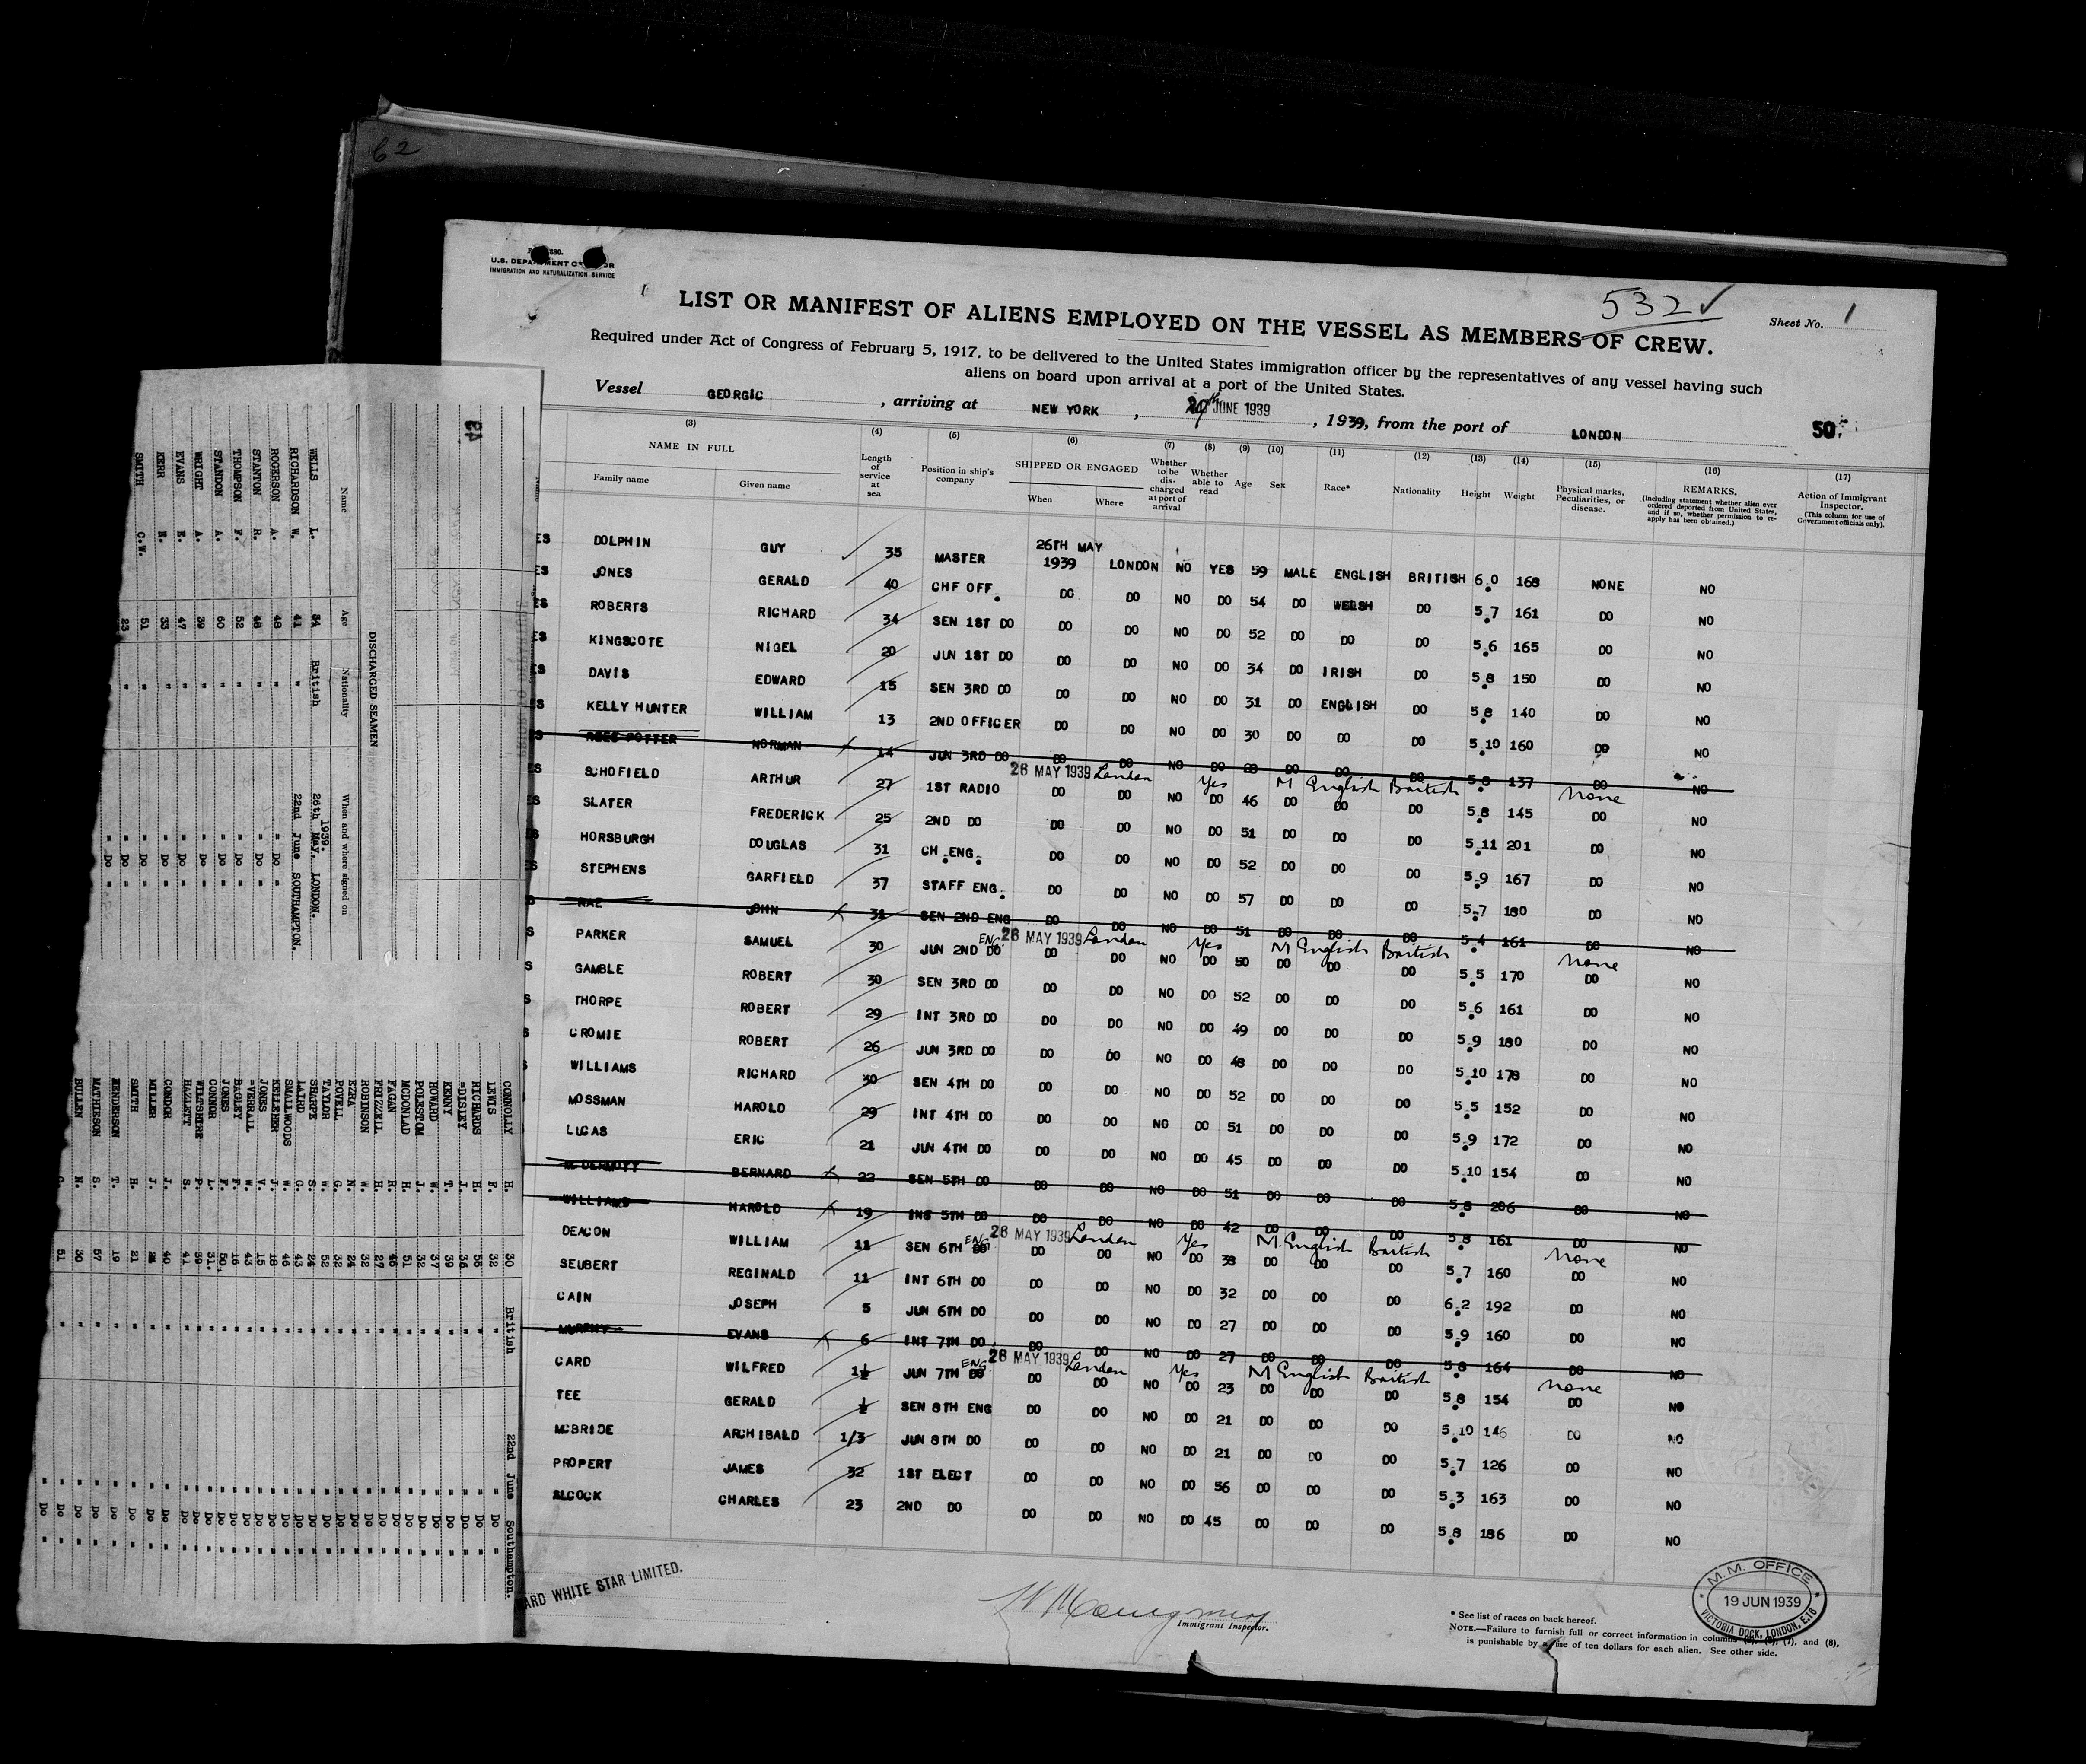 62
U.S. DEPARTMENT OF LABOR
IMMIGRATION AND NATURALIZATION SERVICE
532 ✓
Sheet No. 1
LIST OR MANIFEST OF ALIENS EMPLOYED ON THE VESSEL AS MEMBERS OF CREW.
Required under Act of Congress of February 5, 1917, to be delivered to the United States immigration officer by the representatives of any vessel having such
aliens on board upon arrival at a port of the United States.
Vessel GEORGIC, arriving at NEW YORK, JUNE 1939, 1939, from the port of LONDON 50.
(3) (4) (5) (6) (7) (8) (9) (10) (11) (12) (13) (14) (15) (16) (17)
NAME IN FULL Family name Given name Length of service at sea Position in ship's company SHIPPED OR ENGAGED When Where Whether to be dis-charged at port of arrival Whether able to read Age Sex Race* Nationality Height Weight Physical marks, Peculiarities, or disease. REMARKS. (Including statement whether alien ever ordered deported from United States, and if so, whether permission to re-apply has been obtained.) Action of Immigrant Inspector. (This column for use of Government officials only).
DOLPHIN GUY 35 MASTER 26TH MAY 1939 LONDON NO YES 59 MALE ENGLISH BRITISH 6.0 168 NONE NO
JONES GERALD 40 CHF OFF. DO DO NO DO 54 DO WELSH DO 5.7 161 DO NO
ROBERTS RICHARD 34 SEN 1ST DO DO DO NO DO 52 DO DO DO 5.6 165 DO NO
KINGSCOTE NIGEL 20 JUN 1ST DO DO DO NO DO 34 DO IRISH DO 5.8 150 DO NO
DAVIS EDWARD 15 SEN 3RD DO DO DO NO DO 31 DO ENGLISH DO 5.8 140 DO NO
KELLY HUNTER WILLIAM 13 2ND OFFICER DO DO NO DO 30 DO DO DO 5.10 160 DO NO
REES POTTER NORMAN 14 JUN 3RD DO DO DO NO DO DO DO DO 5.8 137 DO NO
26 MAY 1939 London Yes M English British None
SCHOFIELD ARTHUR 27 1ST RADIO DO DO NO DO 46 DO DO DO 5.8 145 DO NO
SLATER FREDERICK 25 2ND DO DO DO NO DO 51 DO DO DO 5.11 201 DO NO
HORSBURGH DOUGLAS 31 CH.ENG. DO DO NO DO 52 DO DO DO 5.9 167 DO NO
STEPHENS GARFIELD 37 STAFF ENG. DO DO NO DO 57 DO DO DO 5.7 180 DO NO
RAE JOHN 31 SEN 2ND ENG DO DO NO DO 51 DO DO DO 5.4 161 DO NO
26 MAY 1939 London Yes M English British None
PARKER SAMUEL 30 JUN 2ND DO ENG DO DO NO DO 50 DO DO DO 5.5 170 DO NO
GAMBLE ROBERT 30 SEN 3RD DO DO DO NO DO 52 DO DO DO 5.6 161 DO NO
THORPE ROBERT 29 INT 3RD DO DO DO NO DO 49 DO DO DO 5.9 180 DO NO
CROMIE ROBERT 26 JUN 3RD DO DO DO NO DO 48 DO DO DO 5.10 178 DO NO
WILLIAMS RICHARD 30 SEN 4TH DO DO DO NO DO 52 DO DO DO 5.5 152 DO NO
MOSSMAN HAROLD 29 INT 4TH DO DO DO NO DO 51 DO DO DO 5.9 172 DO NO
LUCAS ERIC 21 JUN 4TH DO DO DO NO DO 45 DO DO DO 5.10 154 DO NO
MCDERMOTT BERNARD 22 SEN 5TH DO DO DO NO DO 51 DO DO DO 5.8 206 DO NO
WILLIAMS HAROLD 19 INT 5TH DO DO DO NO DO 42 DO DO DO 5.8 161 DO NO
26 MAY 1939 London Yes M English British None
DEACON WILLIAM 11 SEN 6TH DO ENG DO DO NO DO 38 DO DO DO 5.7 160 DO NO
SEUBERT REGINALD 11 INT 6TH DO DO DO NO DO 32 DO DO DO 6.2 192 DO NO
CAIN JOSEPH 5 JUN 6TH DO DO DO NO DO 27 DO DO DO 5.9 160 DO NO
MURPHY EVANS 6 INT 7TH DO DO DO NO DO 27 DO DO DO 5.8 164 DO NO
26 MAY 1939 London Yes M English British None
CARD WILFRED 1½ JUN 7TH DO ENG DO DO NO DO 23 DO DO DO 5.8 154 DO NO
TEE GERALD ½ SEN 8TH ENG DO DO NO DO 21 DO DO DO 5.10 146 DO NO
MCBRIDE ARCHIBALD 1/3 JUN 8TH DO DO DO NO DO 21 DO DO DO 5.7 126 DO NO
PROPERT JAMES 32 1ST ELECT DO DO NO DO 56 DO DO DO 5.3 163 DO NO
ALCOCK CHARLES 23 2ND DO DO DO NO DO 45 DO DO DO 5.8 186 DO NO
ARD WHITE STAR LIMITED.
Immigrant Inspector.
* See list of races on back hereof.
NOTE.—Failure to furnish full or correct information in columns (7), and (8),
is punishable by a fine of ten dollars for each alien. See other side.
M.M. OFFICE
19 JUN 1939
VICTORIA DOCK, LONDON, E.16
DISCHARGED SEAMEN
Name Age Nationality When and where signed on
1939.
WELLS L. 34 British 26th May, LONDON.
RICHARDSON W. 41 " 22nd June SOUTHAMPTON.
ROGERSON A. 48 " " Do "
STANTON R. 48 " " Do "
THOMPSON F. 52 " " Do "
STANDON A. 60 " " Do "
WRIGHT A. 39 " " Do "
EVANS E. 47 " " Do "
KERR R. 33 " " Do "
SMITH C.W. 51 " " Do "
23 " " Do "
CONNOLLY H. 30 British 22nd June Southampton.
LEWIS F. 32 " " Do "
RICHARDS H. 56 " " Do "
DISLEY J. 36 " " Do "
KENNY T. 39 " " Do "
HOWARD W. 37 " " Do "
POLESTOM J. 32 " " Do "
MCDONLAD H. 51 " " Do "
FAGAN R. 46 " " Do "
FRIZZELL H. 27 " " Do "
ROBINSON W. 32 " " Do "
EZRA N. 24 " " Do "
POWELL G. 32 " " Do "
TAYLOR W. 52 " " Do "
SHARPE S. 24 " " Do "
LAIRD G. 43 " " Do "
SMALLWOODS W. 46 " " Do "
KELLEHER J. 18 " " Do "
JONES V. 15 " " Do "
VERRALL W. 43 " " Do "
BAGLEY F. 16 " " Do "
JONES F. 50 " " Do "
CONNOR L. 31. " " Do "
WILTSHIRE P. 39 " " Do "
HAZLETT S. 41 " " Do "
CONDOR J. 40 " " Do "
MILLER J. " " Do "
SMITH H. 21 " " Do "
HENDERSON T. 19 " " Do "
MATHIESON S. 57 " " Do "
BULLEN N. 30 " " Do "
51 " " Do "